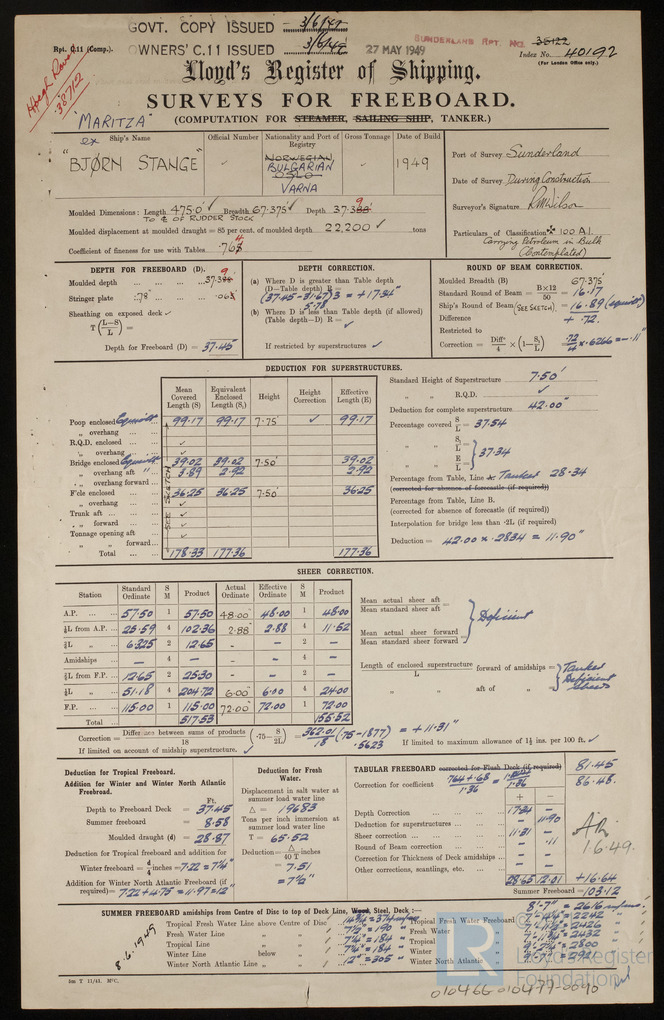 GOVT. COPY ISSUED - 3/6/49
Rpt. C.11 (Comp.).
OWNERS' C.11 ISSUED 3/6/49
27 MAY 1949
SUNDERLAND RPT. NO. 36122
Index No. 40192
(For London Office only.)
38712
Lloyd's Register of Shipping.
SURVEYS FOR FREEBOARD.
(COMPUTATION FOR STEAMER, SAILING SHIP, TANKER.)
"MARITZA"
ex Ship's Name
Official Number
Nationality and Port of Registry
Gross Tonnage
Date of Build
"BJØRN STANGE"
NORWEGIAN,
BULGARIAN
OSLO
VARNA
1949
Port of Survey Sunderland
Date of Survey During Construction
Surveyor's Signature RM Wilson
Particulars of Classification 100 A1.
Carrying Petroleum in Bulk
(Contemplated)
Moulded Dimensions: Length 475.0' Breadth 67.375 Depth 37.39
To ₵ OF RUDDER STOCK
Moulded displacement at moulded draught = 85 per cent. of moulded depth 22,200 tons
Coefficient of fineness for use with Tables .764
DEPTH FOR FREEBOARD (D).
Moulded depth 37.39
Stringer plate .78" .06
Sheathing on exposed deck
T (L-S/L) =
Depth for Freeboard (D) = 37.45
DEPTH CORRECTION.
(a) Where D is greater than Table depth
(D—Table depth) R =
(37.45-31.67) 3 = +17.34"
5.78
(b) Where D is less than Table depth (if allowed)
(Table depth—D) R =
If restricted by superstructures
ROUND OF BEAM CORRECTION.
Moulded Breadth (B) 67.375'
Standard Round of Beam = B×12/50 = 16.17
Ship's Round of Beam (SEE SKETCH) = 16.89 (equivalt)
Difference + .72.
Restricted to
Correction = Diffce/4 × (1-S₁/L) = .72/4 × .6266 = -.11"
DEDUCTION FOR SUPERSTRUCTURES.
Mean Covered Length (S)
Equivalent Enclosed Length (S₁)
Height
Height Correction
Effective Length (E)
Poop enclosed Equivalt 99.17 99.17 7.75' 99.17
" overhang
R.Q.D. enclosed
" overhang
Bridge enclosed Equivalt 39.02 39.02 7.50' 39.02
" overhang aft 3.89 2.92 2.92
" overhang forward
F'cle enclosed 36.25 36.25 7.50' 36.25
" overhang
Trunk aft
" forward
Tonnage opening aft
" " forward
Total 178.33 177.36 177.36
SEE SKETCH
Standard Height of Superstructure 7.50'
" " R.Q.D.
Deduction for complete superstructure 42.00"
Percentage covered S/L = 37.54
" " S₁/L =
" " E/L = 37.34
Percentage from Table, Line Tanker 28.34
(corrected for absence of forecastle (if required))
Percentage from Table, Line B.
(corrected for absence of forecastle (if required))
Interpolation for bridge less than ·2L (if required)
Deduction = 42.00 × .2834 = 11.90"
SHEER CORRECTION.
Station
Standard Ordinate
S M
Product
Actual Ordinate
Effective Ordinate
S M
Product
A.P. 57.50 1 57.50 48.00 48.00 1 48.00
⅙L from A.P. 25.59 4 102.36 2.88 2.88 4 11.52
⅓L " 6.325 2 12.65 - - 2 -
Amidships - 4 - - - 4 -
⅓L from F.P. 12.65 2 25.30 - - 2 -
⅙L " 51.18 4 204.72 6.00 6.00 4 24.00
F.P. 115.00 1 115.00 72.00 72.00 1 72.00
Total 517.53 155.52
Mean actual sheer aft =
Mean standard sheer aft
Mean actual sheer forward =
Mean standard sheer forward
Deficient
Length of enclosed superstructure/L forward of amidships =
" " aft of " =
Tanker
Deficient
sheer
Correction = Difference between sums of products/18 (·75-S/2L) = 362.01/18 (.75-.1877) = +11.31"
.5623
If limited on account of midship superstructure.
If limited to maximum allowance of 1½ ins. per 100 ft.
Deduction for Tropical Freeboard.
Addition for Winter and Winter North Atlantic Freeboard.
Ft.
Depth to Freeboard Deck = 37.45
Summer freeboard = 8.58
Moulded draught (d) = 28.87
Deduction for Tropical freeboard and addition for
Winter freeboard = d/4 inches = 7.22 = 7¼"
Addition for Winter North Atlantic Freeboard (if
required) = 7.22 + 4.75 = 11.97 = 12"
Deduction for Fresh Water.
Displacement in salt water at
summer load water line
Δ = 19683
Tons per inch immersion at
summer load water line
T = 65.52
Deduction = Δ/40 T inches
= 7.51
= 7½"
TABULAR FREEBOARD corrected for Flush Deck (if required) 81.45
Correction for coefficient .764+.68/1.36 = 1.36 86.48.
+ −
Depth Correction 17.34 -
Deduction for superstructures - 11.90
Sheer correction 11.31 -
Round of Beam correction - .11
Correction for Thickness of Deck amidships - -
Other corrections, scantlings, etc. - -
28.65 12.01 +16.64
Summer Freeboard = 103.12
16.49.
SUMMER FREEBOARD amidships from Centre of Disc to top of Deck Line, Wood, Steel, Deck :— 8'-7" = 2616
Tropical Fresh Water Line above Centre of Disc 14¾" = 374
Fresh Water Line " " 7½" = 190
Tropical Line " " 7¼" = 184
Winter Line below " 7¼" = 184
Winter North Atlantic Line " " 12" = 305
Tropical Fresh Water Freeboard 2242
Fresh Water " 2426
Tropical " 2432
Winter " 2800
Winter North Atlantic "
8.6.1949
LR
Lloyd's Register
Foundation
5m T 11/41. MᶜC.
010466-010477-0090